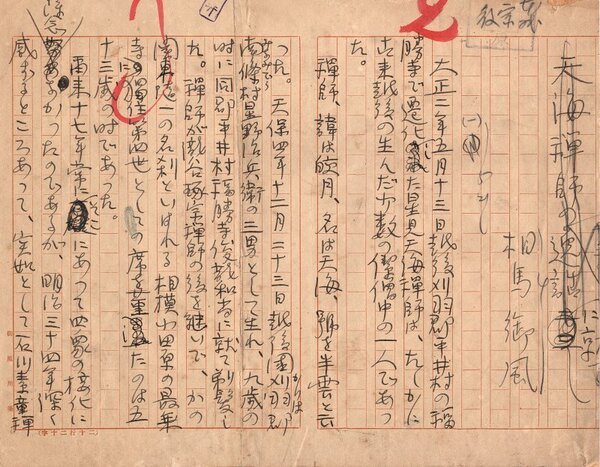 天海禅師の遺
相馬御風
(一)
大正二年五月十三日越後刈羽郡平井村の福
勝寺で遷化した星見天海禅師は、たしかに
古来越後の生んだ少数の傑僧中の一人であつ
た。
禅師、諱は皎月、名は天海、号を半雲と云
つた。天保四年十二月二十三日越後国刈羽郡
南條村星野治兵衛の三男として生れ、九歳の
時に同郡平井村福勝寺俊苗和尚に就て剃髪し
た。禅師が琢宗禅師の後を継いで、かの
関東随一の名刹といはれる相模小田原の最乗
寺に独住第四世としての席をたのは五
十三歳の時であつた。
爾来十七年常にそこにあつて四衆の接化に
なかつたのであるが、明治三十四年深く
感ずるところあつて、実如として石川素童禅